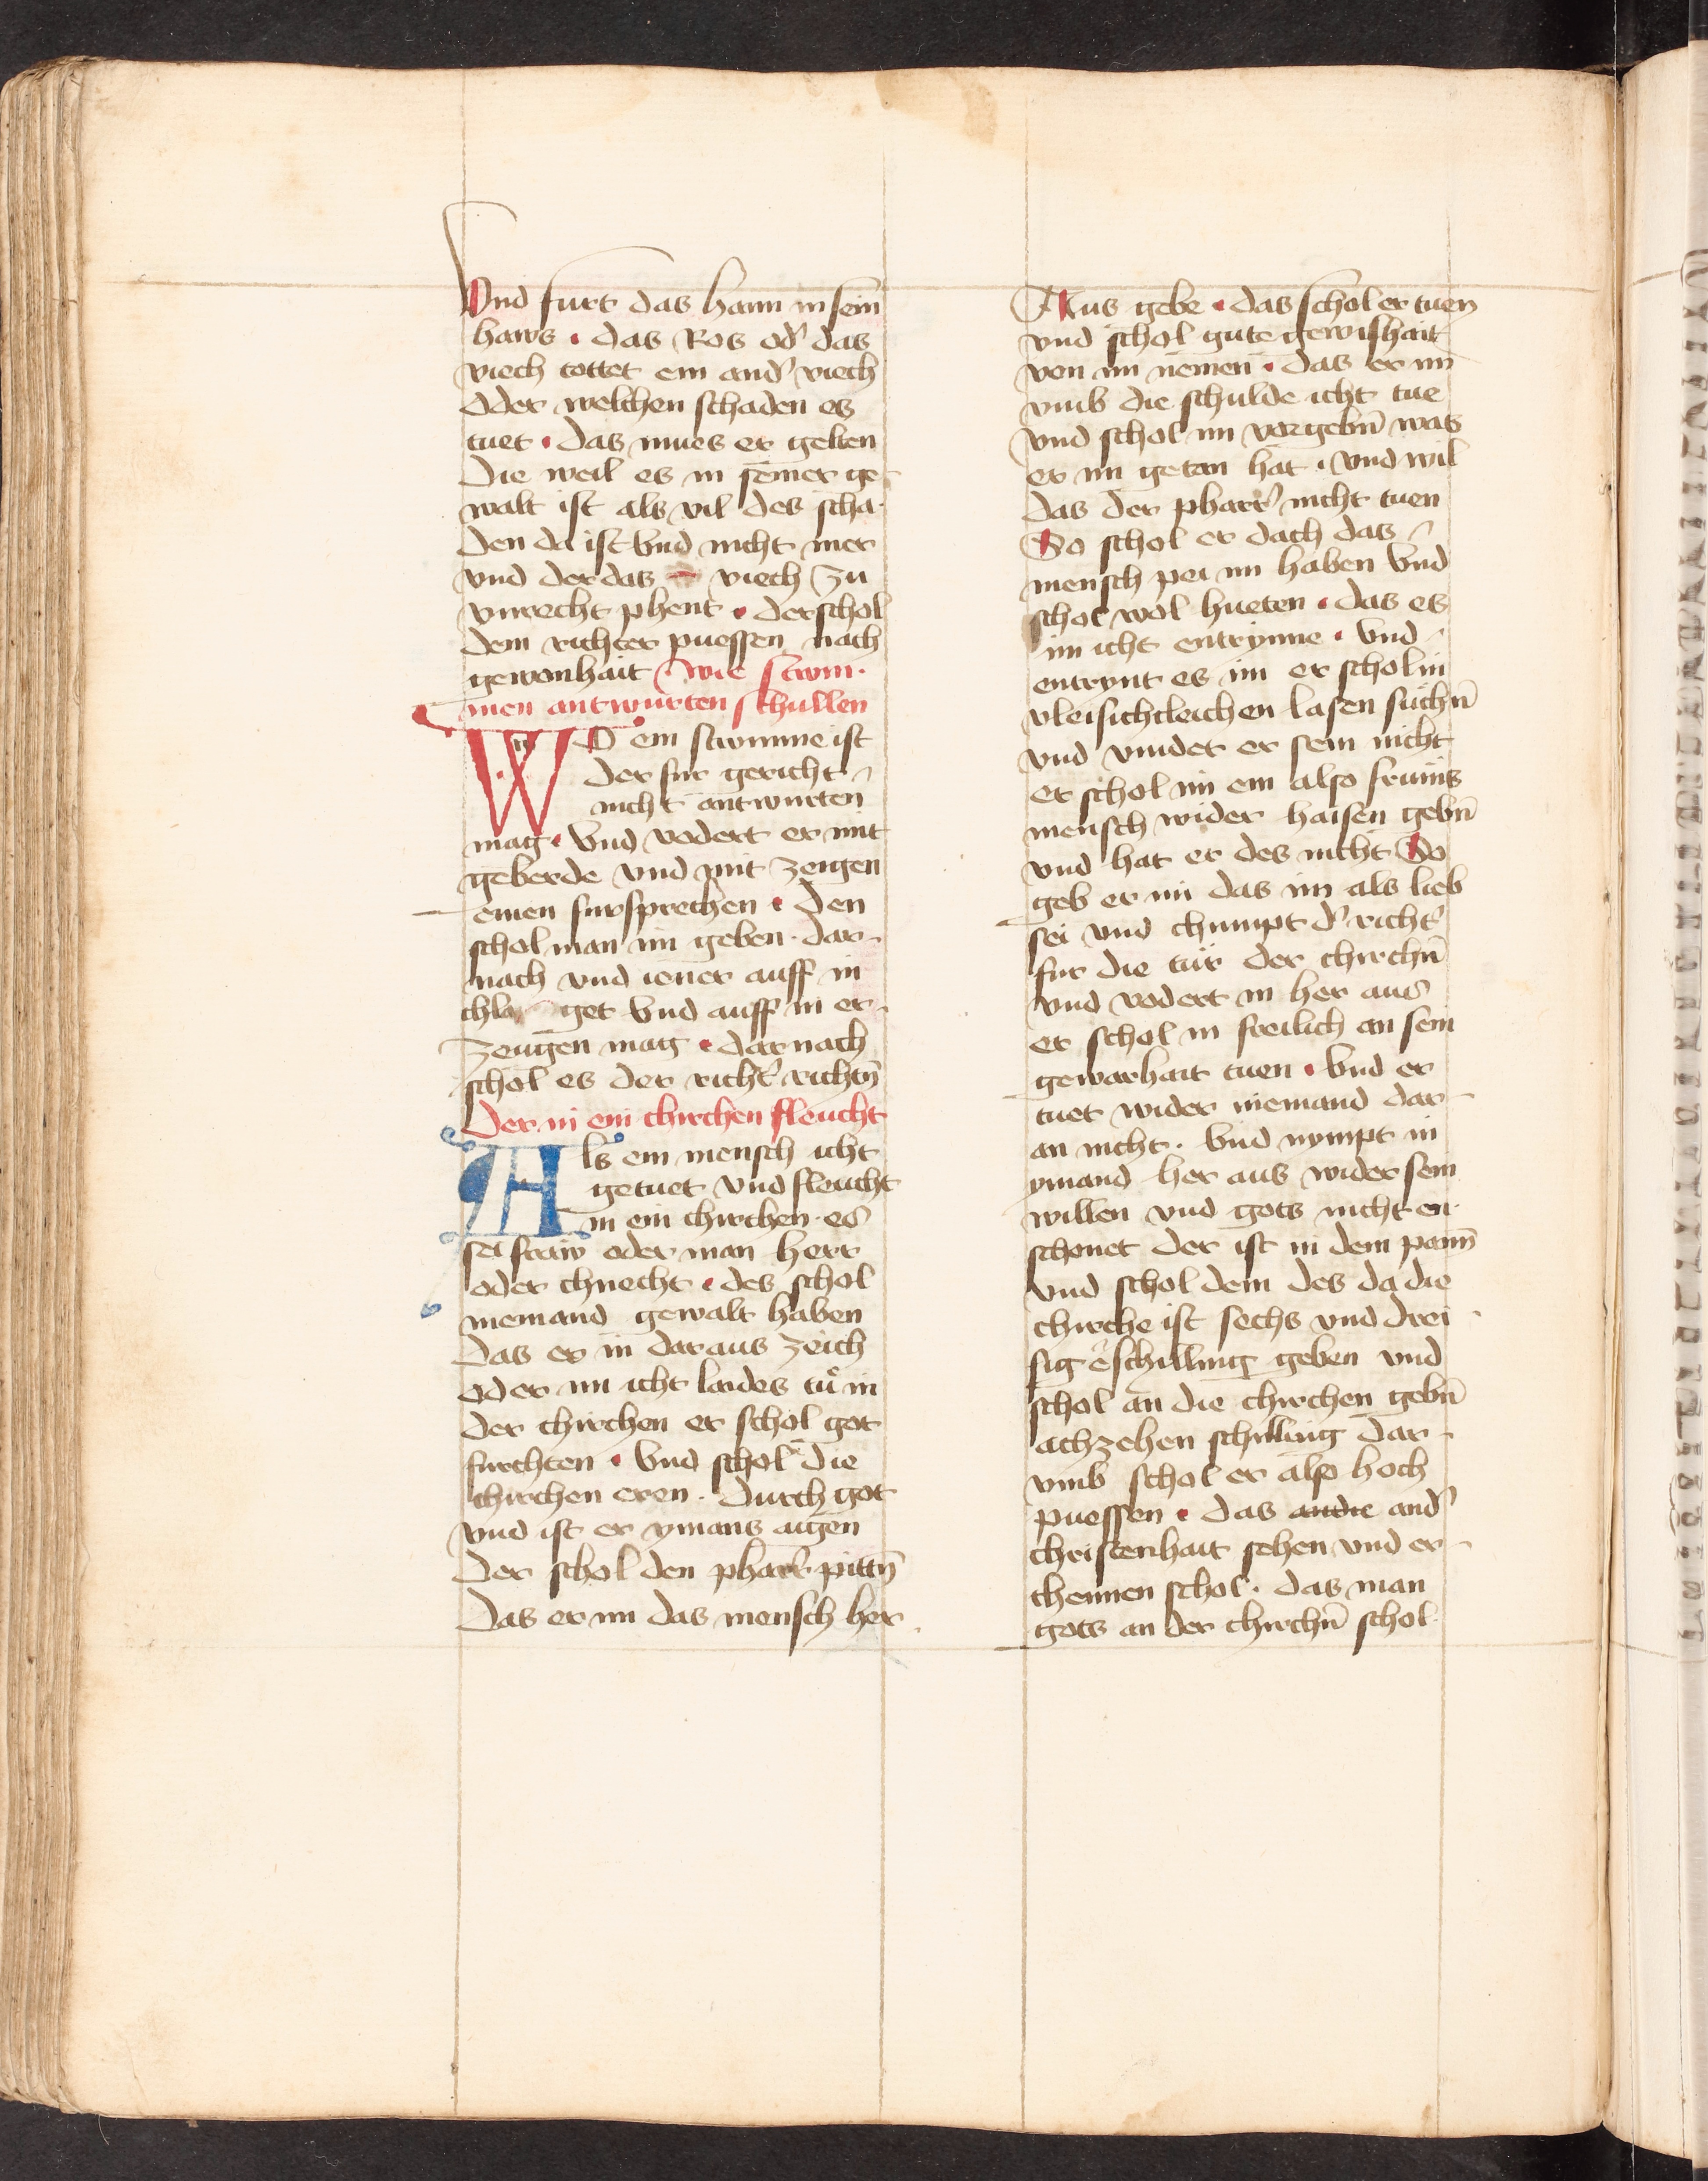 Vnd furt das haim in sein
haws · das Ros od' das
viech tottet ein and' viech
oder welchen schaden es
tuet · das mues er gelten
die weil es in seiner ge-
walt ist als vil des scha-
den da ist vnd nicht mer
vnd der das viech zu
vnrecht phent · der schol
dem richter puessen nach
gewonhait wie stum-
men antwurten schullen
WO ein stumme ist
der fur gericht
nicht antwurten
mag · vnd vodert er mit
geberde vnd mit zeigen
einen fursprechen · den
schol man im geben · dar-
nach vnd iener auff in
chla get vnd auff in er-
zeugen mag · dar nach
schol es der richt' richtn̄
Der in ein chirchen fleucht
Als ein mensch icht
getuet vnd fleucht
in ein chirchen · es
sei fraw oder man herr
oder chnecht · des schol
niemand gewalt haben
das er in dar aus zeich
oder im icht laides tů in
der chirchen er schol got
furchten · vnd schol die
chirchen eren · durch got
vnd ist er ymans aigen
der schol den pharr' pittn̄
das er im das mensch her
Aus gebe · das schol er tuen
vnd schol gute gewishait
von im nemen · das er im
vmb die schulde icht tue
vnd schol im vorgebn̄ was
er im getan hat · vnd wil
das der pharr' nicht tuen
So schol er dach das
mensch pei im haben vnd
schol wol hueten · das es
im icht entrynne · vnd
entrynt es im er schol in
vleisichleichen lasen suchn̄
vnd vindet er sein nicht
er schol im ein also frums
mensch wider haisen gebn̄
vnd hat er des nicht So
geb er im das im als lieb
sei vnd chumpt d' richt'
fur die tür der chirchn̄
vnd vodert in her aus
er schol in freilich an sein
gewarhait tuen · vnd er
tuet wider niemand dar-
an nicht · vnd nympt in
ymand her aus wider sein
willen vnd gots nicht en-
schonet der ist in dem pann̄
vnd schol dem des da die
chirche ist sechs vnd drei-
sig schilling geben vnd
schol an die chirchen gebn̄
achzehen schilling dar-
vmb schol er also hoch
puessen · das andre and'
christenhait sehen vnd er-
chennen schol · das man
gots an der chirchn̄ schol